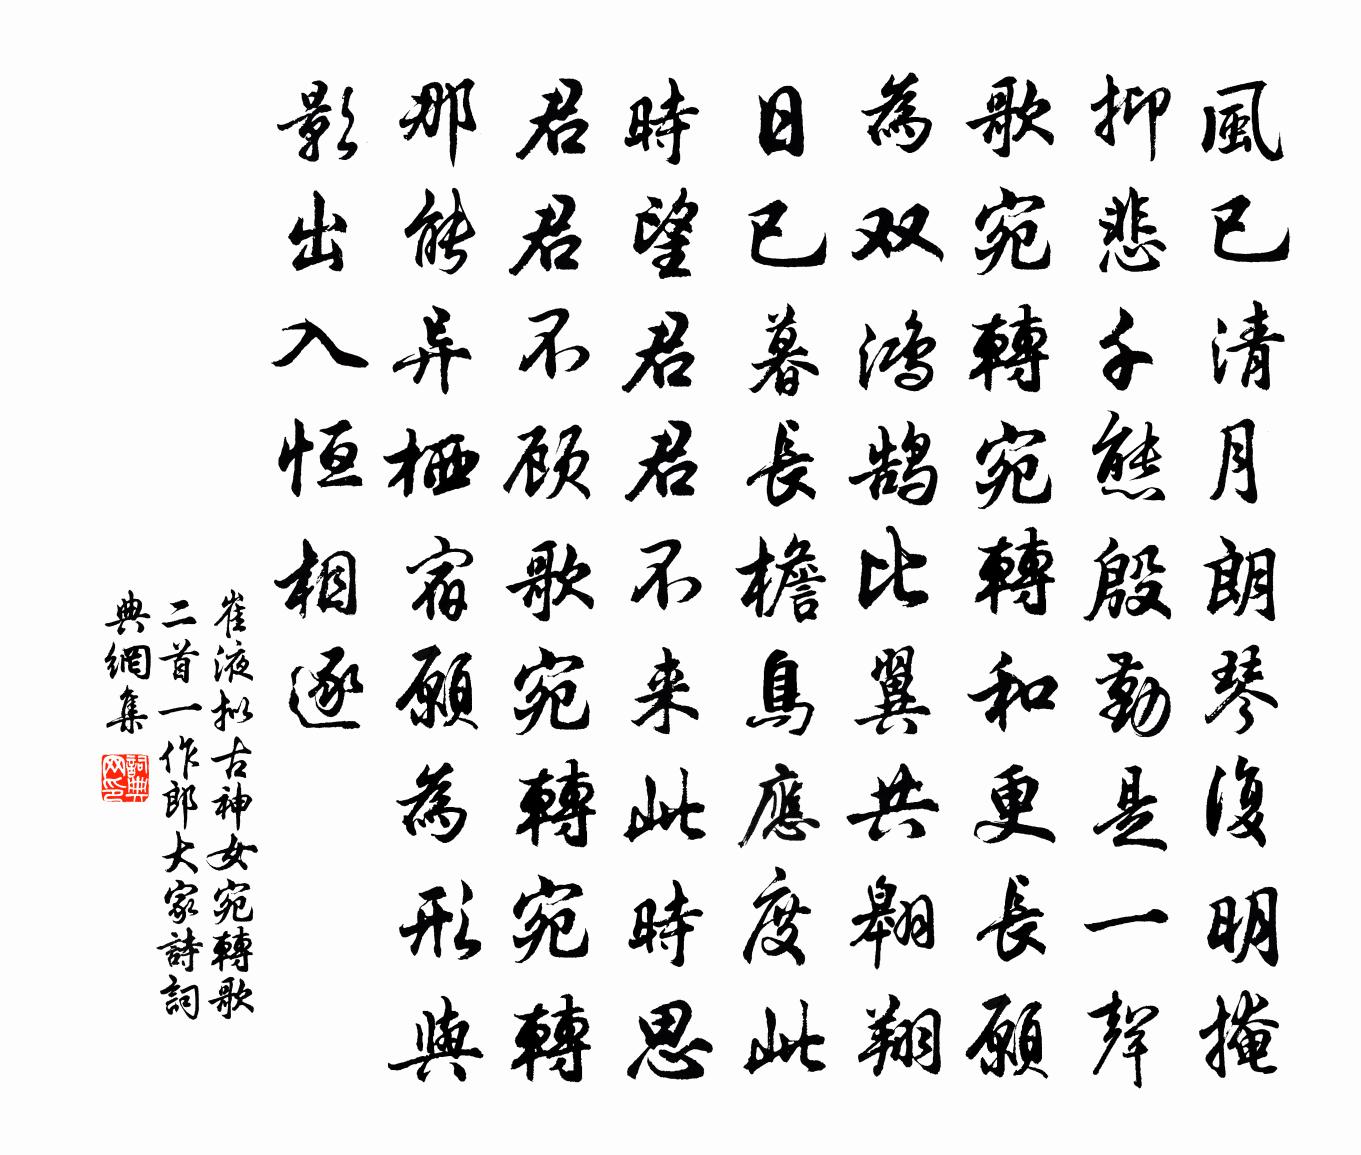 風已清月朗琴復明掩
抑悲千態殷勤是一聲
歌宛轉宛轉和更長願
為双鴻鹄比翼共翱翔
日已暮長檐鳥應度此
時望君君不来此時思
君君不顾歌宛轉宛轉
那能异栖宿願為形與
影出入恒相逐
崔液拟古神女宛轉歌
二首一作郎大家詩詞
典網集
詞典网印